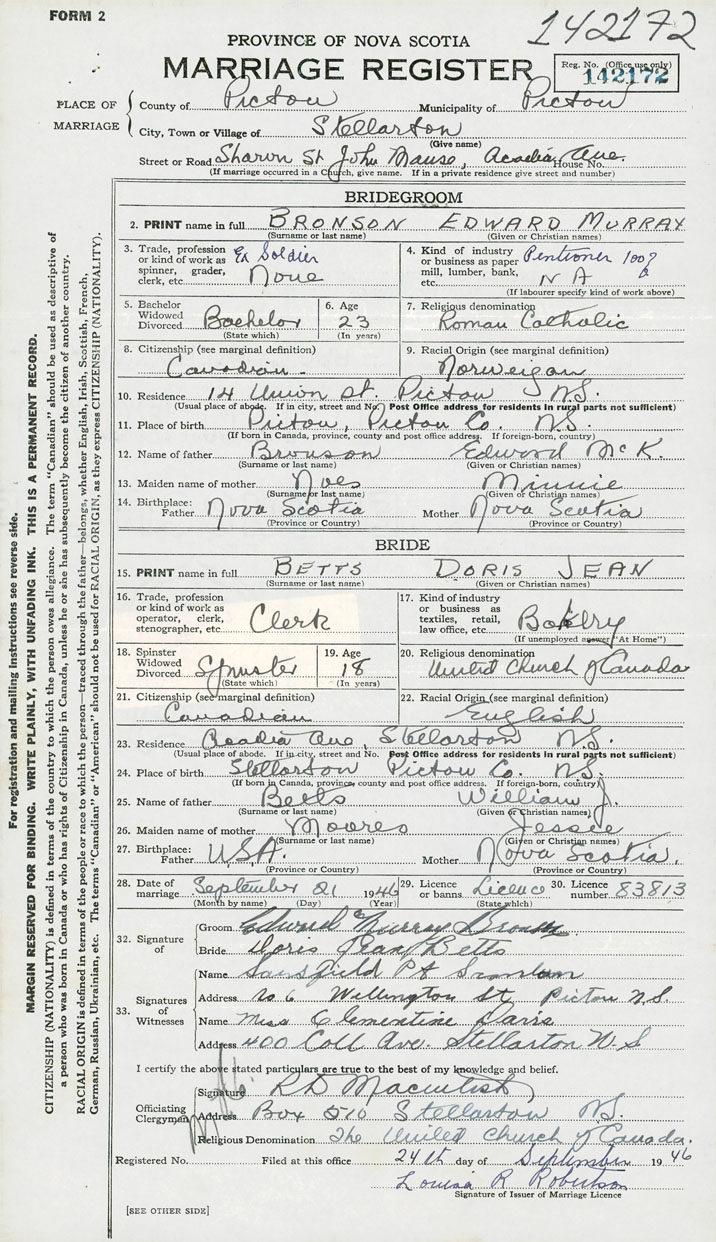 FORM 2
142172
PROVINCE OF NOVA SCOTIA
MARRIAGE REGISTER
Reg. No. (Office use only)
142172
PLACE OF MARRIAGE
County of Pictou Municipality of Pictou
City, Town or Village of Stellarton
(Give name)
Street or Road Sharon St John Manse, Acadia Ave. House No.
(If marriage occurred in a Church, give name. If in a private residence give street and number)
BRIDEGROOM
2. PRINT name in full BRONSON EDWARD MURRAY
(Surname or last name) (Given or Christian names)
3. Trade, profession or kind of work as spinner, grader, clerk, etc. Ex Soldier None
4. Kind of industry or business as paper mill, lumber, bank, etc. Pentioner 100% NA
(If labourer specify kind of work above)
5. Bachelor Widowed Divorced Bachelor
(State which)
6. Age 23
(In years)
7. Religious denomination Roman Catholic
8. Citizenship (see marginal definition) Canadian
9. Racial Origin (see marginal definition) Norweigan
10. Residence 14 Union St. Pictou N.S.
(Usual place of abode. If in city, street and No. Post Office address for residents in rural parts not sufficient)
11. Place of birth Pictou, Pictou Co. N.S.
(If born in Canada, province, county and post office address. If foreign-born, country)
12. Name of father Bronson Edward McK.
(Surname or last name) (Given or Christian names)
13. Maiden name of mother Noes Minnie
(Surname or last name) (Given or Christian names)
14. Birthplace: Father Nova Scotia Mother Nova Scotia
(Province or Country) (Province or Country)
BRIDE
15. PRINT name in full BETTS DORIS JEAN
(Surname or last name) (Given or Christian names)
16. Trade, profession or kind of work as operator, clerk, stenographer, etc. Clerk
17. Kind of industry or business as textiles, retail, law office, etc. Bakery
(If unemployed answer "At Home")
18. Spinster Widowed Divorced Spinster
(State which)
19. Age 18
(In years)
20. Religious denomination United Church of Canada
21. Citizenship (see marginal definition) Canadian
22. Racial Origin (see marginal definition) English
23. Residence Acadia Ave, Stellarton N.S.
(Usual place of abode. If in city, street and No. Post Office address for residents in rural parts not sufficient)
24. Place of birth Stellarton Pictou Co. N.S.
(If born in Canada, province, county and post office address. If foreign-born, country)
25. Name of father Betts William J.
(Surname or last name) (Given or Christian names)
26. Maiden name of mother Moores Jessie
(Surname or last name) (Given or Christian names)
27. Birthplace: Father U.S.A. Mother Nova Scotia.
(Province or Country) (Province or Country)
28. Date of marriage September 21 1946
(Month by name) (Day) (Year)
29. Licence or banns Licence
(State which)
30. Licence number 83813
32. Signature of
Groom Edward Murray Bronson
Bride Doris Jean Betts
33. Signatures of Witnesses
Name Sansfield
Address No 6 Wellington St Pictou N.S.
Name Miss Clementine Davis
Address 400 Coll Ave. Stellarton N.S
I certify the above stated particulars are true to the best of my knowledge and belief.
Officiating Clergyman
Signature R D Macintosh
Address Box 510 Stellarton N.S.
Religious Denomination The United Church of Canada.
Registered No. Filed at this office 24th day of September 1946
Louisa R Robertson
Signature of Issuer of Marriage Licence
[SEE OTHER SIDE]
For registration and mailing instructions see reverse side.
MARGIN RESERVED FOR BINDING. WRITE PLAINLY, WITH UNFADING INK. THIS IS A PERMANENT RECORD.
CITIZENSHIP (NATIONALITY) is defined in terms of the country to which the person owes allegiance. The term "Canadian" should be used as descriptive of
a person who was born in Canada or who has rights of Citizenship in Canada, unless he or she has subsequently become the citizen of another country.
RACIAL ORIGIN is defined in terms of the people or race to which the person—traced through the father—belongs, whether English, Irish, Scottish, French,
German, Russian, Ukrainian, etc. The terms "Canadian" or "American" should not be used for RACIAL ORIGIN, as they express CITIZENSHIP (NATIONALITY).